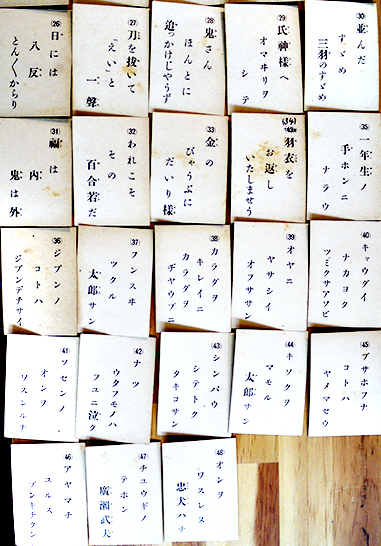 ㉖ 日には
八反
とんくからり
㉗ 刀を抜いて
「えい」と
一聲
㉘ 鬼さん
ほんとに
追っかけじやうず
㉙ 氏神様へ
オマヰリヲ
シテ
㉚ 並んだ
すゞめ
三羽のすゞめ
㉛ 福は
内
鬼は外
㉜ われこそ
その
百合若だ
㉝ 金の
びゃうぶに
だいり様
羽衣を
お返し
いたしませう
㉟ 一年生ノ
手ホンニ
ナラウ
㊱ ジブンノ
コトハ
ジブンデナサイ
㊲ フンスヰ
ツクル
太郎サン
㊳ カラダヲ
キレイニ
カラダヲ
ヂヤウブニ
㊴ オヤニ
ヤサシイ
オフササン
㊵ キャウダイ
ナカヨク
ツミクサアソビ
㊶ ソセンノ
オンヲ
ワスレルナ
㊷ ナツ
ウタフモノハ
フユニ泣ク
㊸ シンバウ
シテトク
タキコサン
㊹ キソクヲ
マモル
太郎サン
㊺ ブサホフナ
コトハ
ヤメマセウ
㊻ アヤマチ
ユルス
ブンキチクン
㊼ チユウギノ
テホン
廣瀬武夫
㊽ オンヲ
ワスレヌ
忠犬ハチ